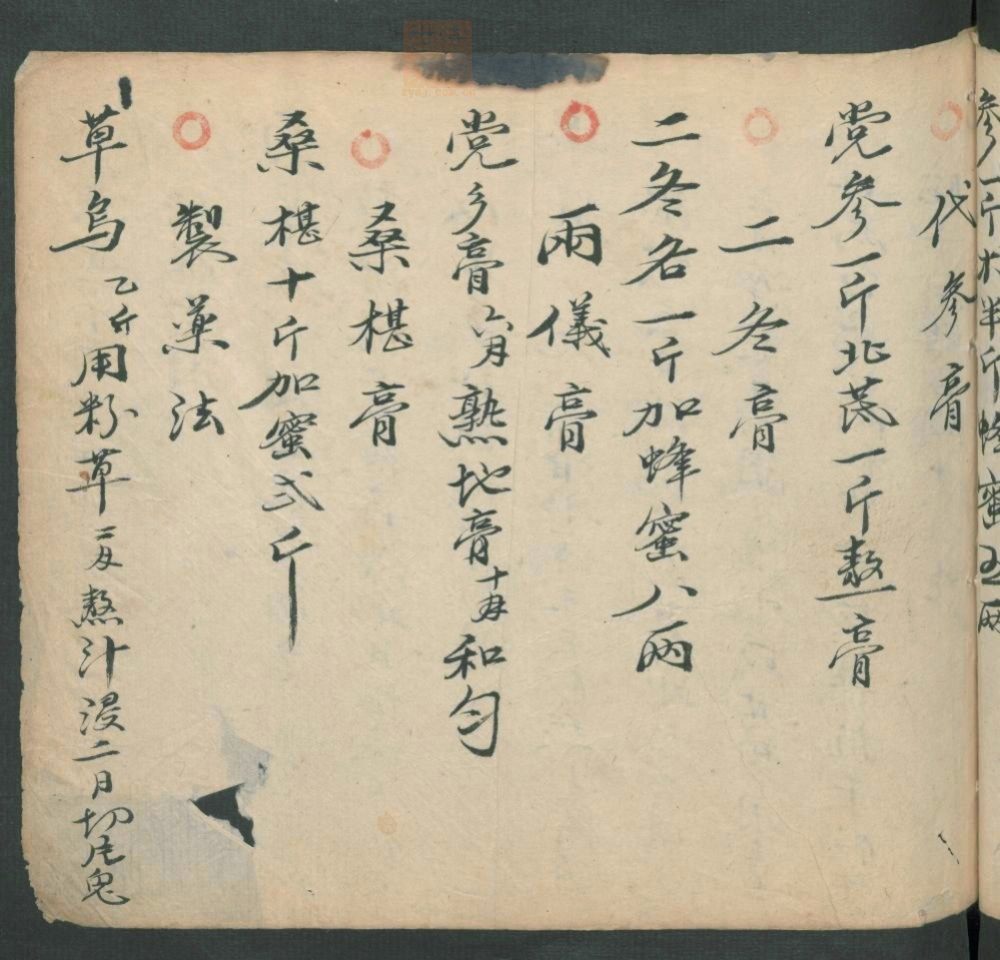 参一斤朮半斤蜂蜜五兩
代参膏
党参一斤北芪一斤熬膏
二冬膏
二冬各一斤加蜂蜜八兩
兩儀膏
党参膏六月熟地膏十兩和匀
桑椹膏
桑椹十斤加蜜弍斤
製薬法
草烏乙斤用粉草二兩熬汁浸二日切片鬼